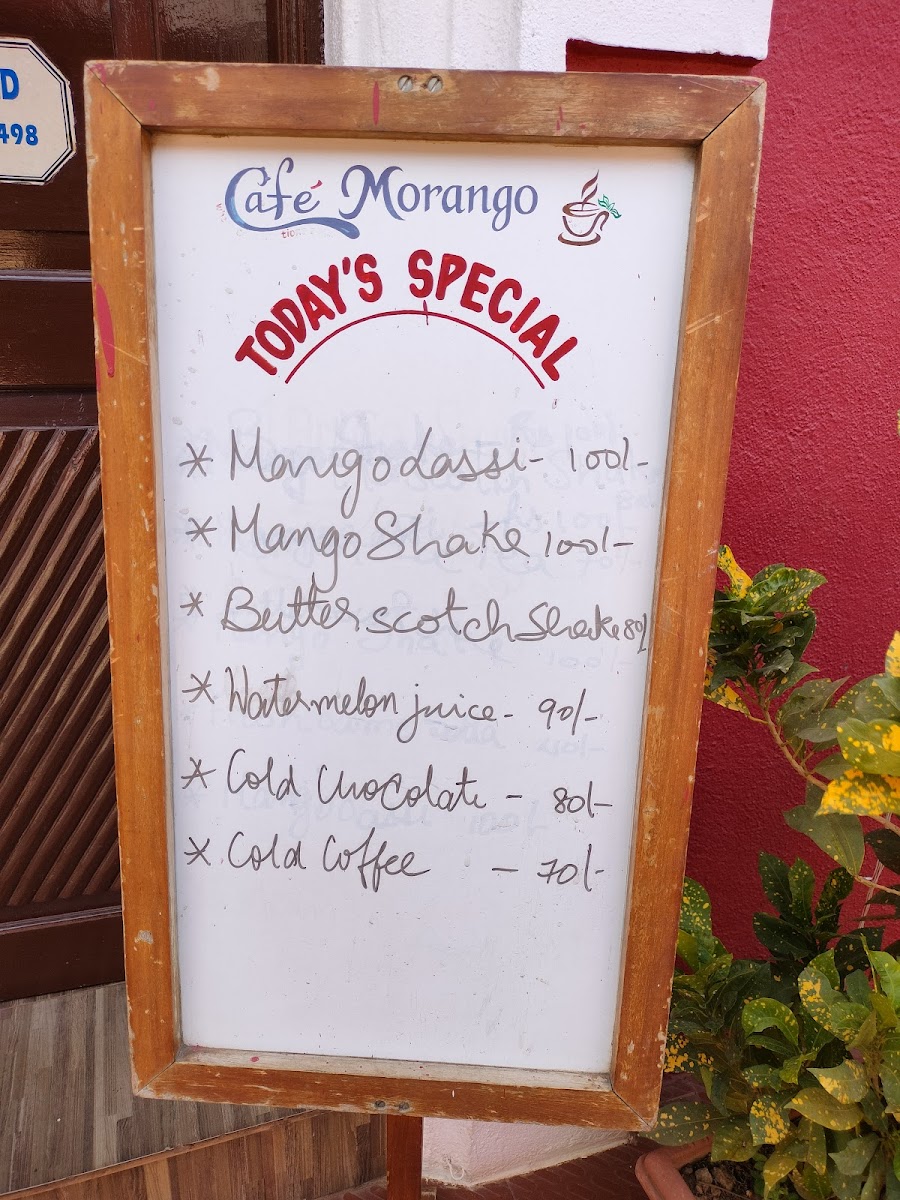 D
498
Café Morango
TODAY'S SPECIAL
* Mango Lassi - 100/-
* Mango Shake 100/-
* Butterscotch Shake 80/
* Watermelon juice - 90/-
* Cold Chocolate - 80/-
* Cold Coffee - 70/-